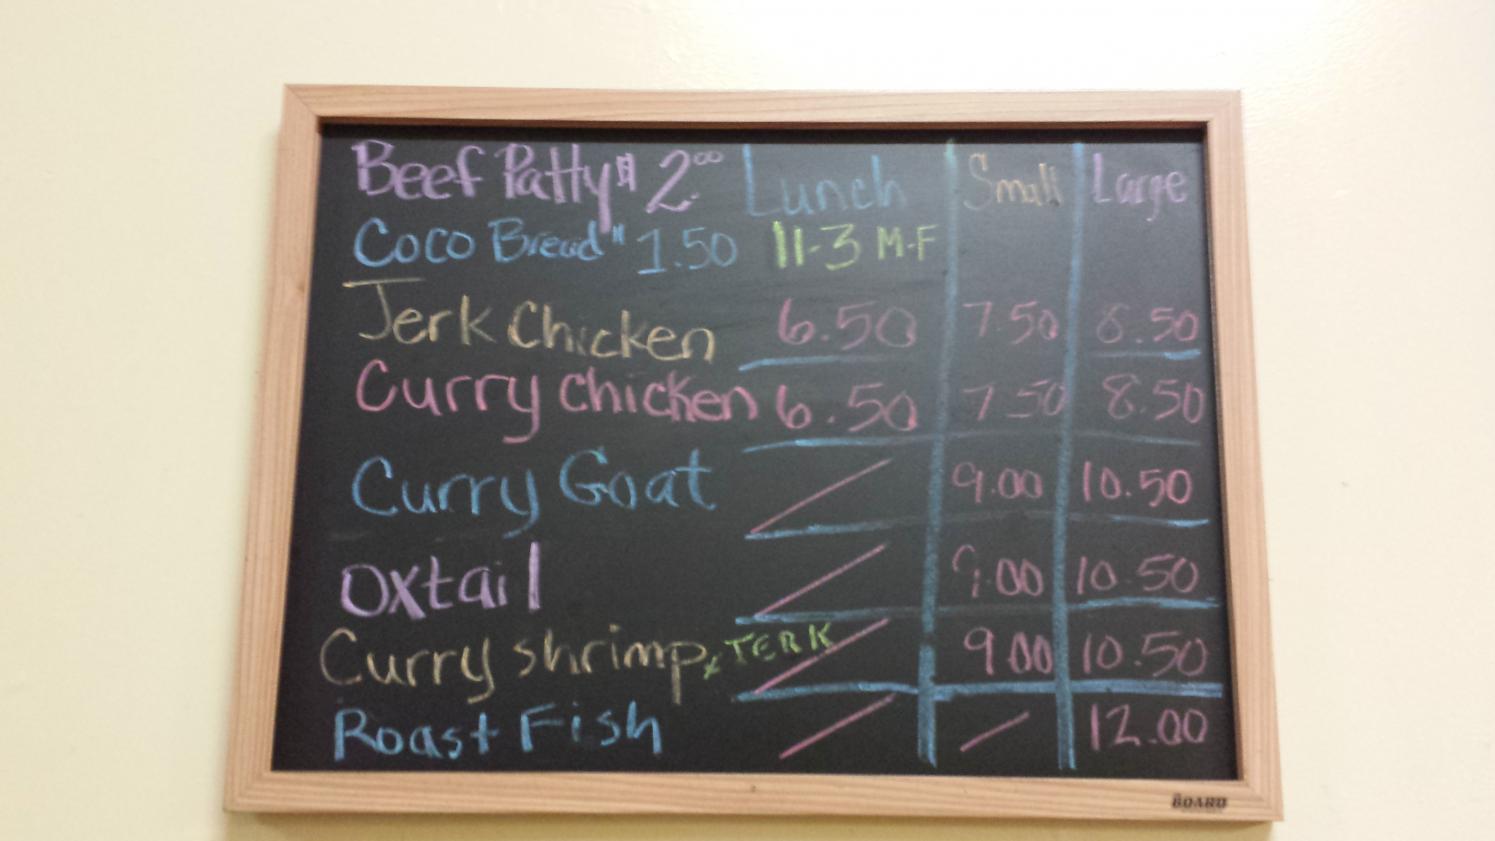 Beef Patty $ 2.00 Lunch Small Large
Coco Bread " 1.50 11-3 M-F
Jerk Chicken 6.50 7.50 8.50
Curry Chicken 6.50 7.50 8.50
Curry Goat / 9.00 10.50
Oxtail / 9.00 10.50
Curry shrimp x JERK / 9.00 10.50
Roast Fish / / 12.00
BOARD